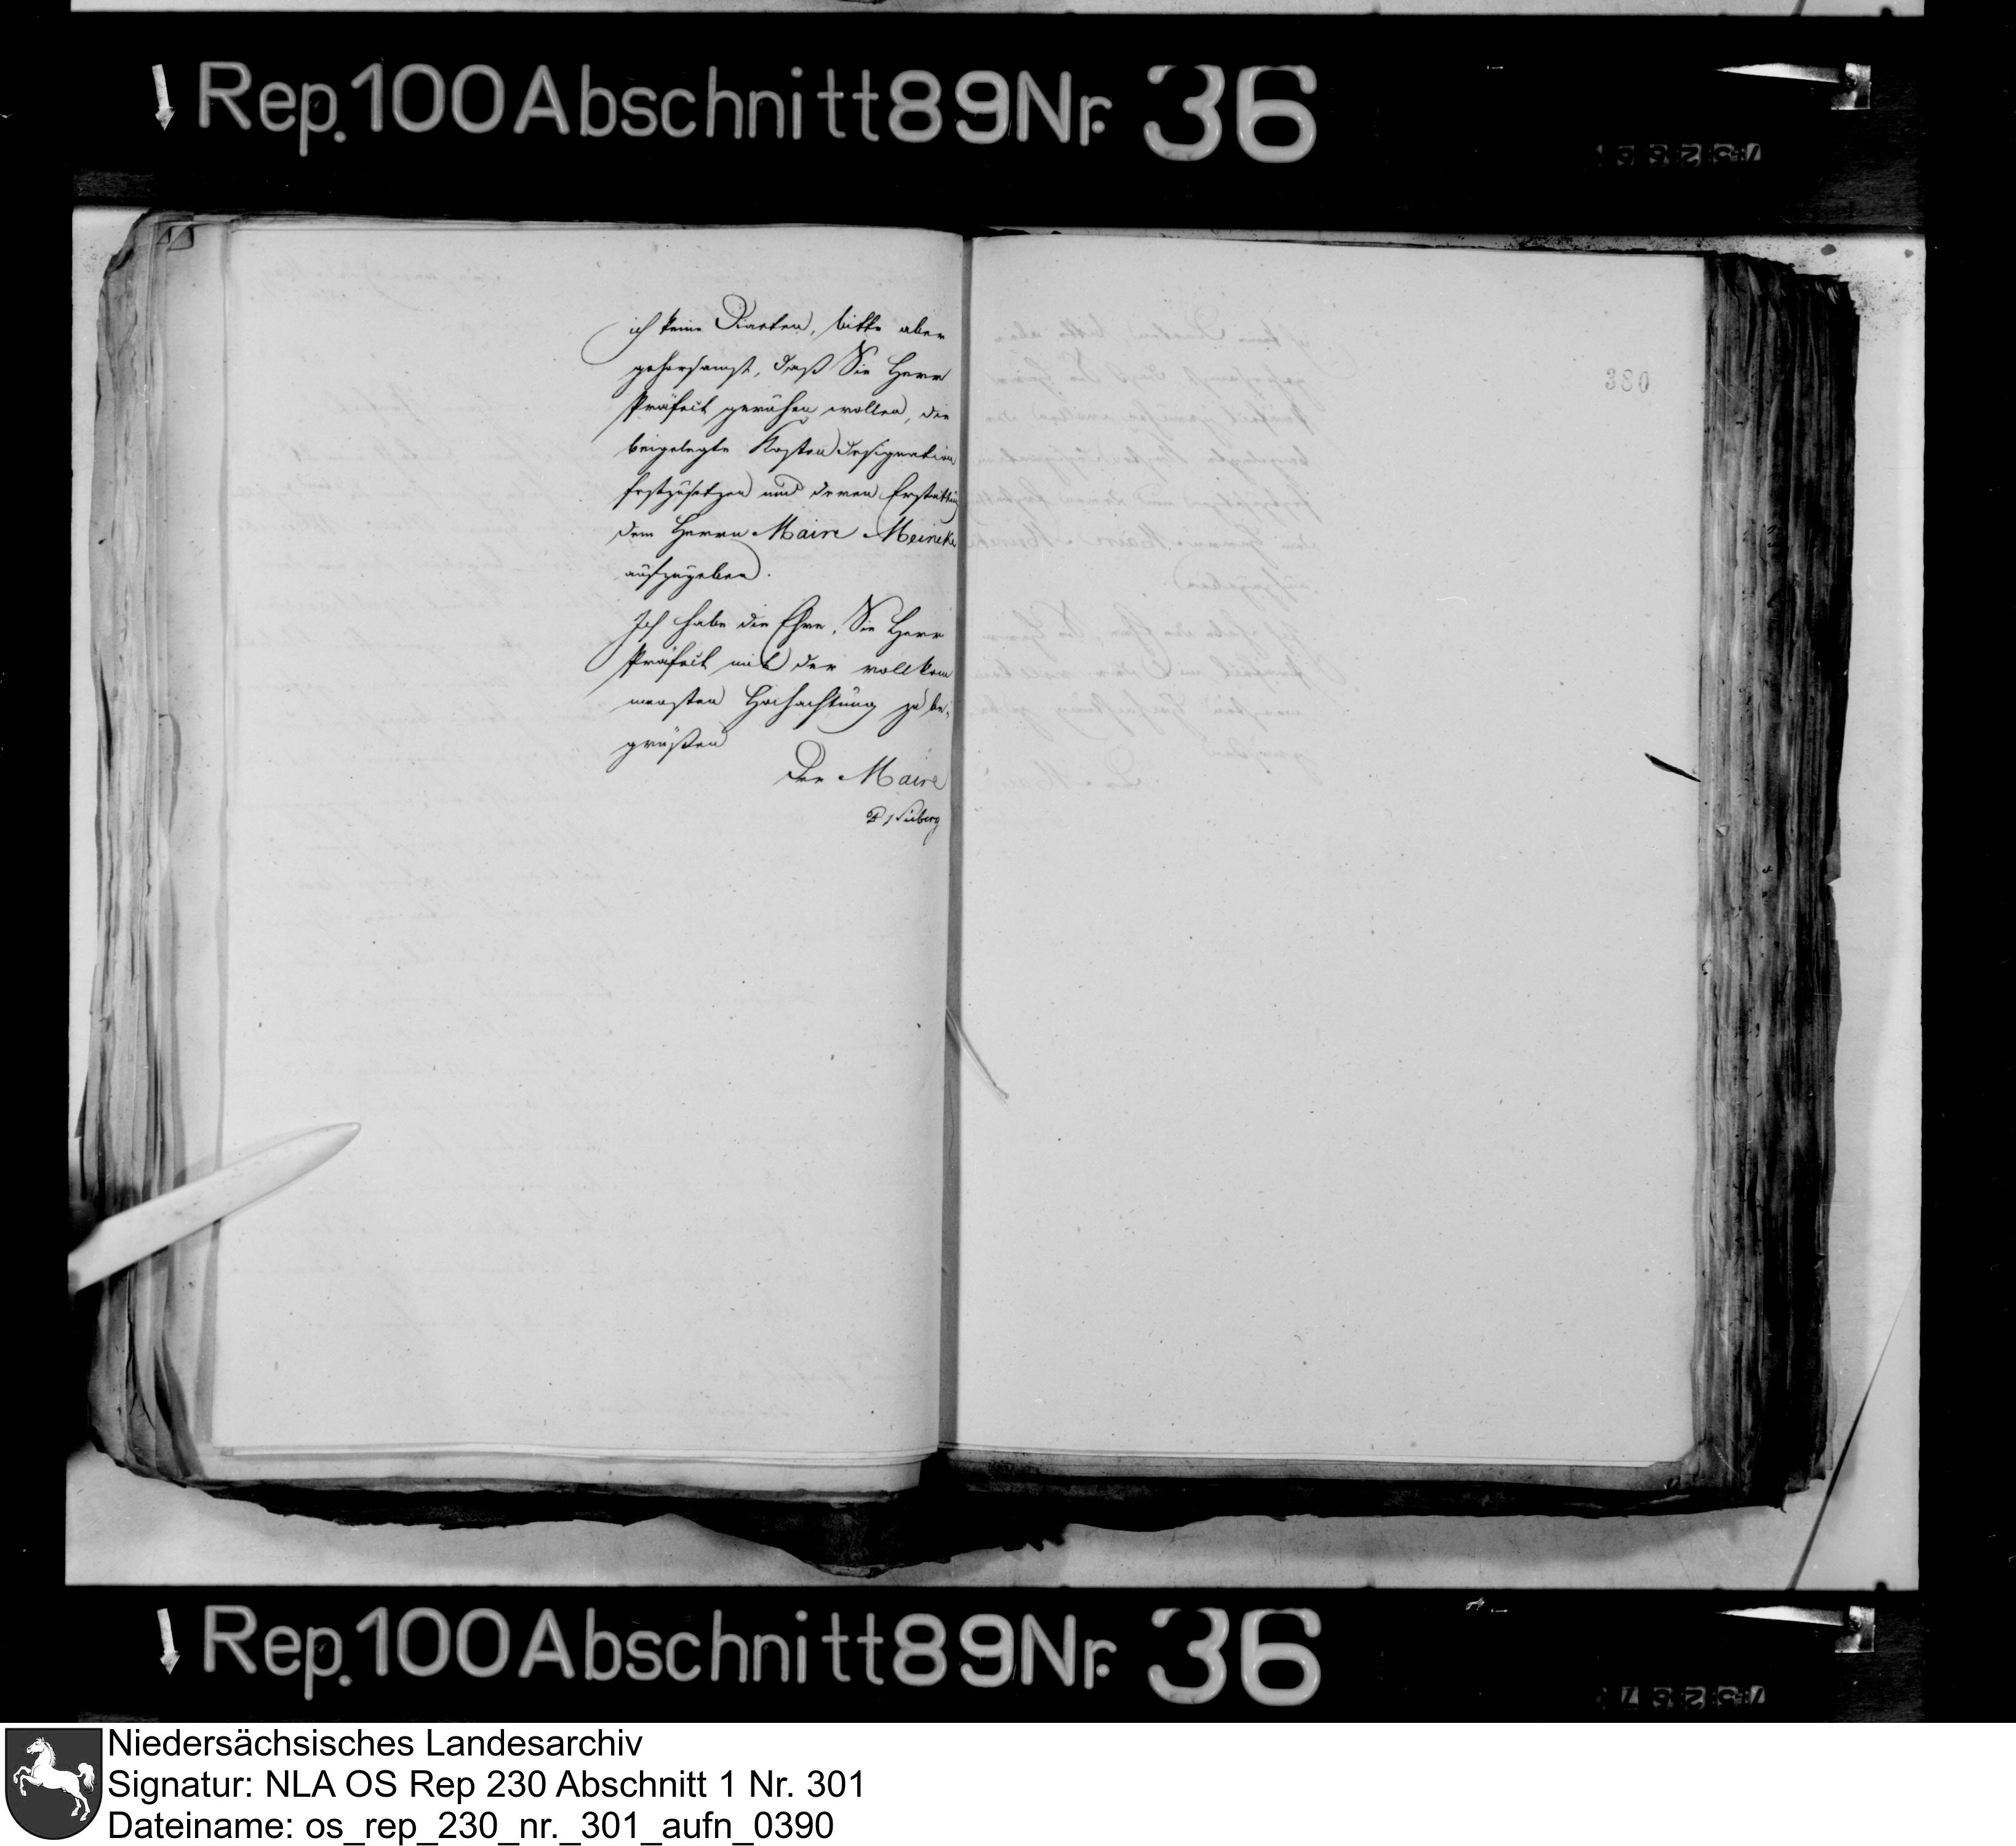 Rep. 100 Abschnitt 89 Nr. 36
ich keine Diaeten, bitte aber
gehorsamst, daß Sie Herr
Präfect geruhen wollen, die
beigelegte Kosten Designation
festzusetzen und deren Erstattung
dem Herrn Maire Meineke
aufzugeben.
Ich habe die Ehre, Sie Herr
Präfect mit der vollkom
mensten Hochachtung zu be-
grüßen
Der Maire
380
Rep. 100 Abschnitt 89 Nr. 36
Niedersächsisches Landesarchiv
Signatur: NLA OS Rep 230 Abschnitt 1 Nr. 301
Dateiname: os_rep_230_nr._301_aufn_0390